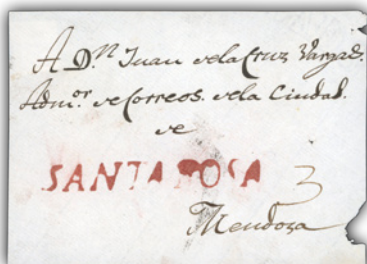 A Dⁿ Juan dela Cruz Vargas.
Admᵒʳ de Correos. dela Ciudad.
de
SANTA ROSA 3
Mendoza